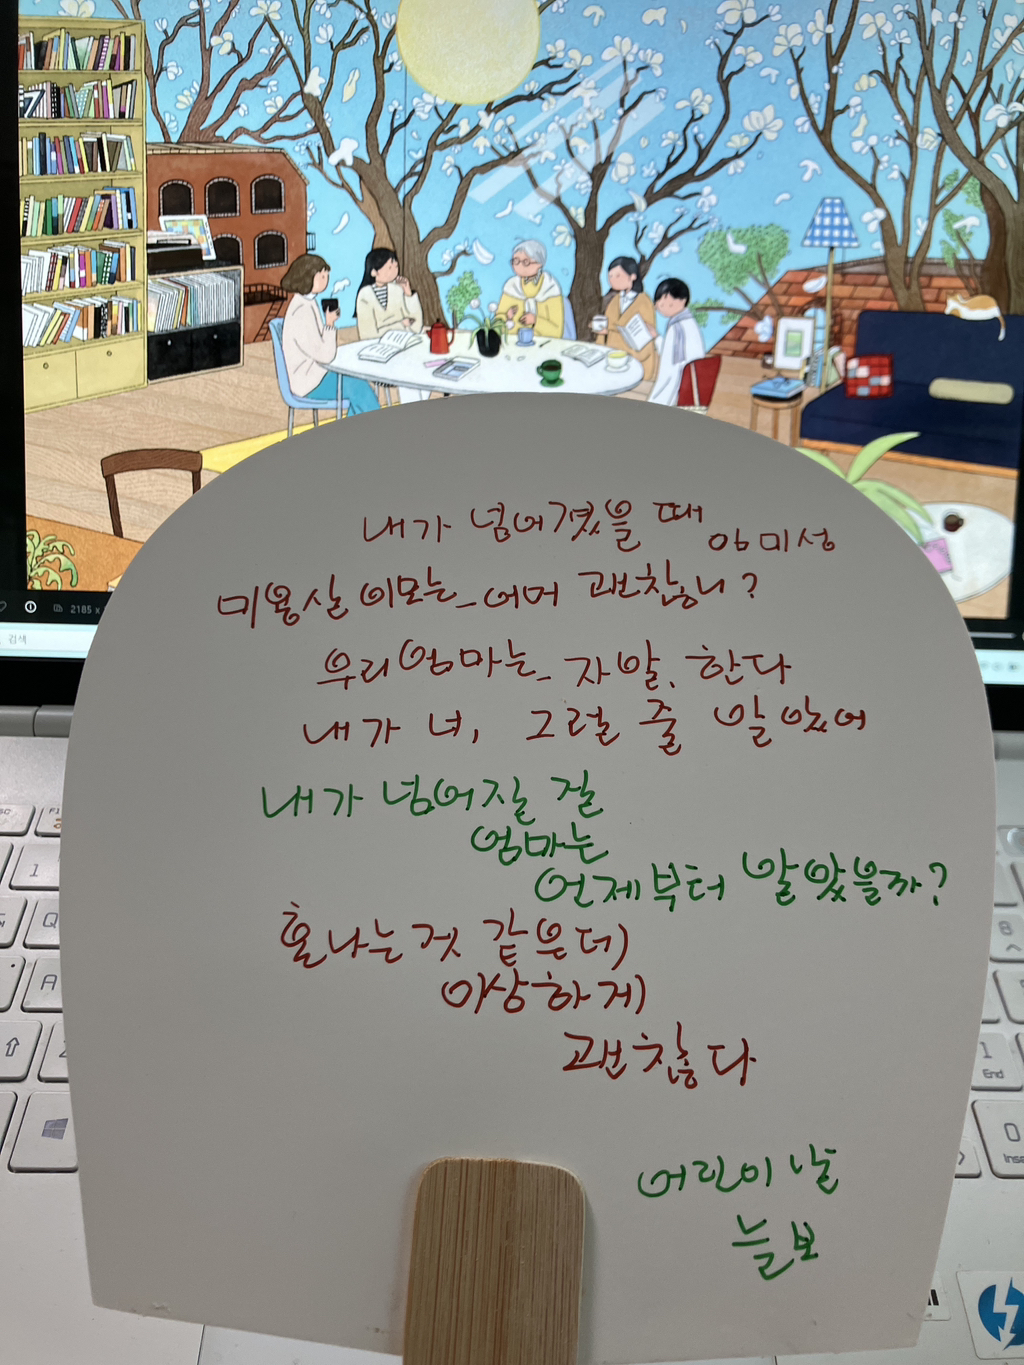 내가 넘어졌을 때
임미성
미용실 이모는_어머 괜찮니?
우리 엄마는_자알, 한다
내가 너, 그럴 줄 알았어
내가 넘어질 걸
엄마는
언제부터 알았을까?
혼나는 것 같은데
이상하게
괜찮다
어린이 날
늘보
2185 x
검색
1
Q
A
8
1
End
0